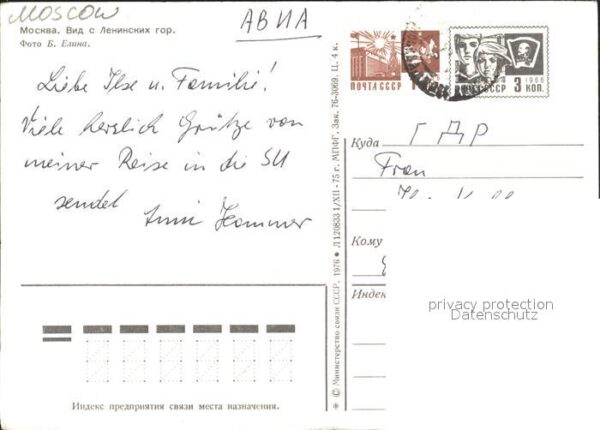 MOSCOW
Москва. Вид с Ленинских гор.
Фото Б. Елина.
АВИА
Liebe Ilse u. Familie!
Viele herzlich Grütze von
meiner Reise in die SU
sendet
Anni Hammer
ПОЧТА СССР
1966
3 КОП.
Куда ГДР
Frau
Кому
Индек
privacy protection
Datenschutz
* © Министерство связи СССР, 1976 * Л 120833 1/XII - 75 г. МПФГ, Зак. 76-3069. Ц. 4 к.
Индекс предприятия связи места назначения.